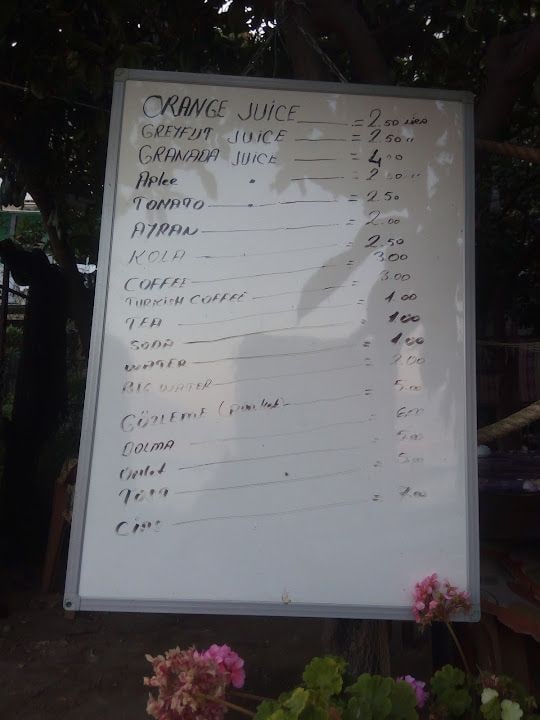 ORANGE JUICE = 2.50 LİRA
GREYFUT JUİCE = 2.50 "
GRANADA JUICE = 4.00
APLEE " = 2.50 "
TOMATO " = 2.50
AYRAN = 2.00
KOLA = 2.50
COFFEE = 3.00
TURKISH COFFEE 3.00
TEA = 1.00
SODA 1.00
WATER = 1.00
BIG WATER = 2.00
GÖZLEME = 5.00
DOLMA = 6.00
Omlet = 5.00
TOST = 5.00
CİPS = 7.00